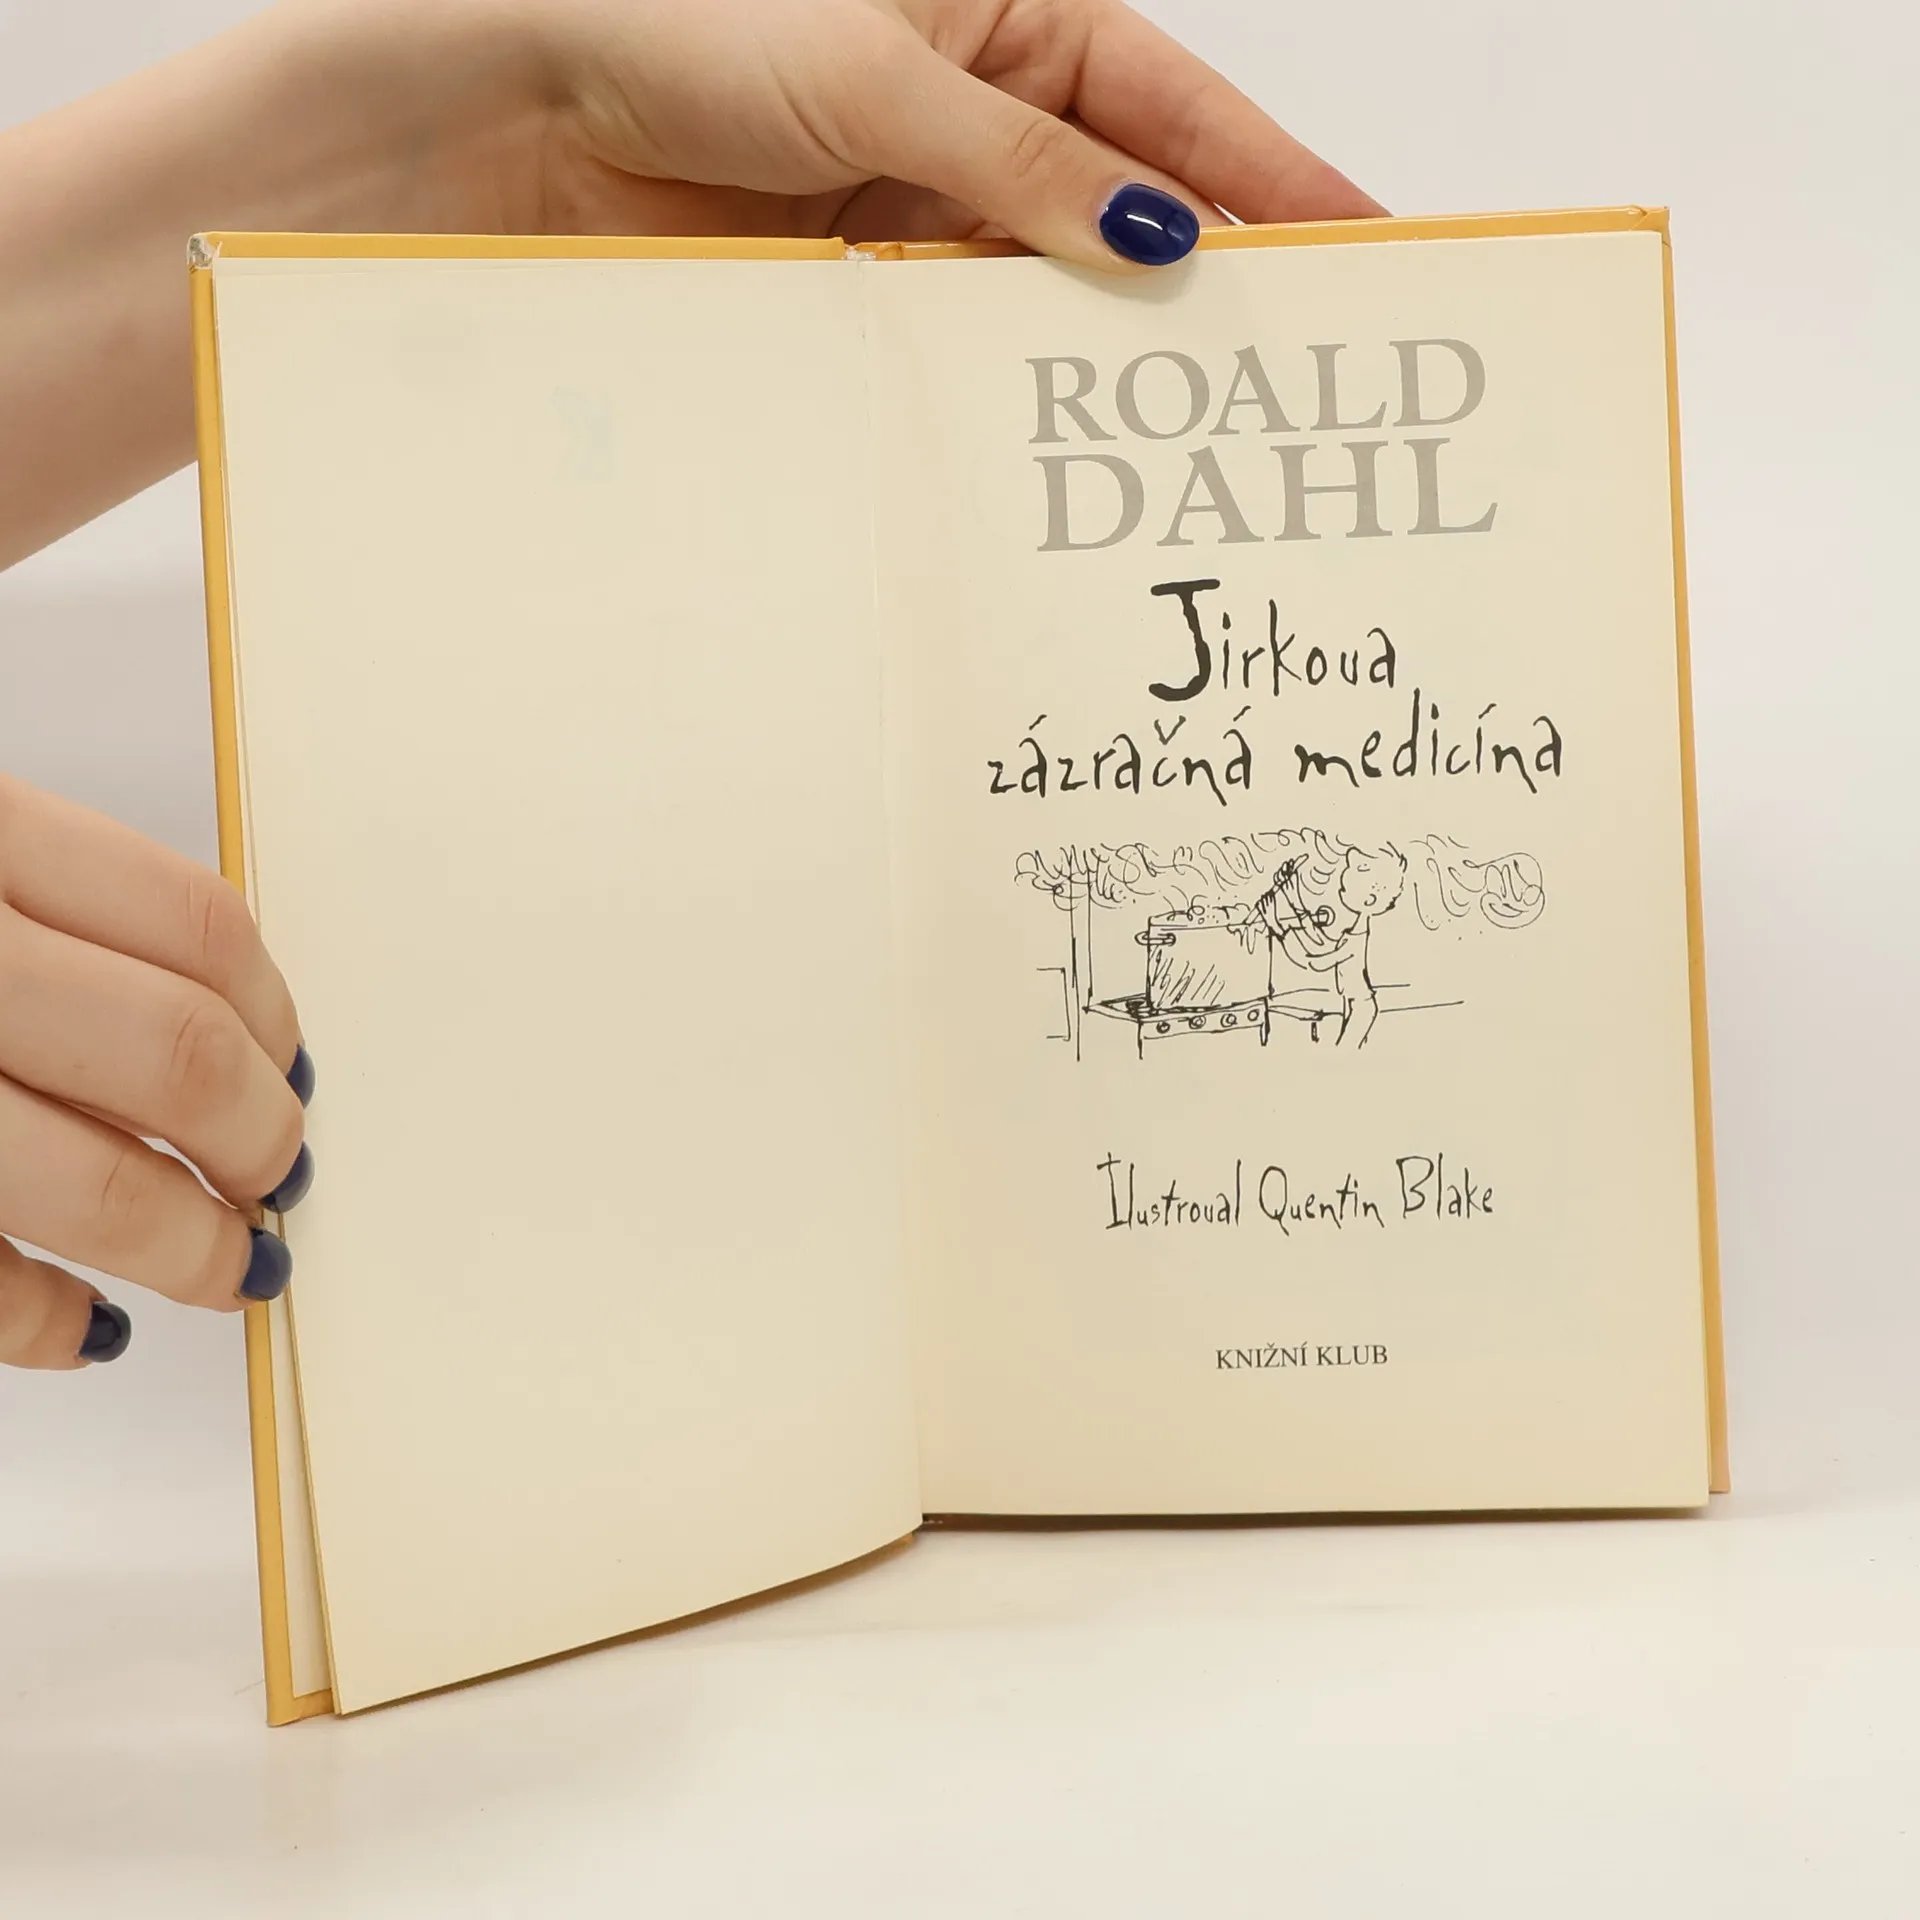 ROALD
DAHL
Jirkova
zázračná medicína
Ilustroval Quentin Blake
KNIŽNÍ KLUB